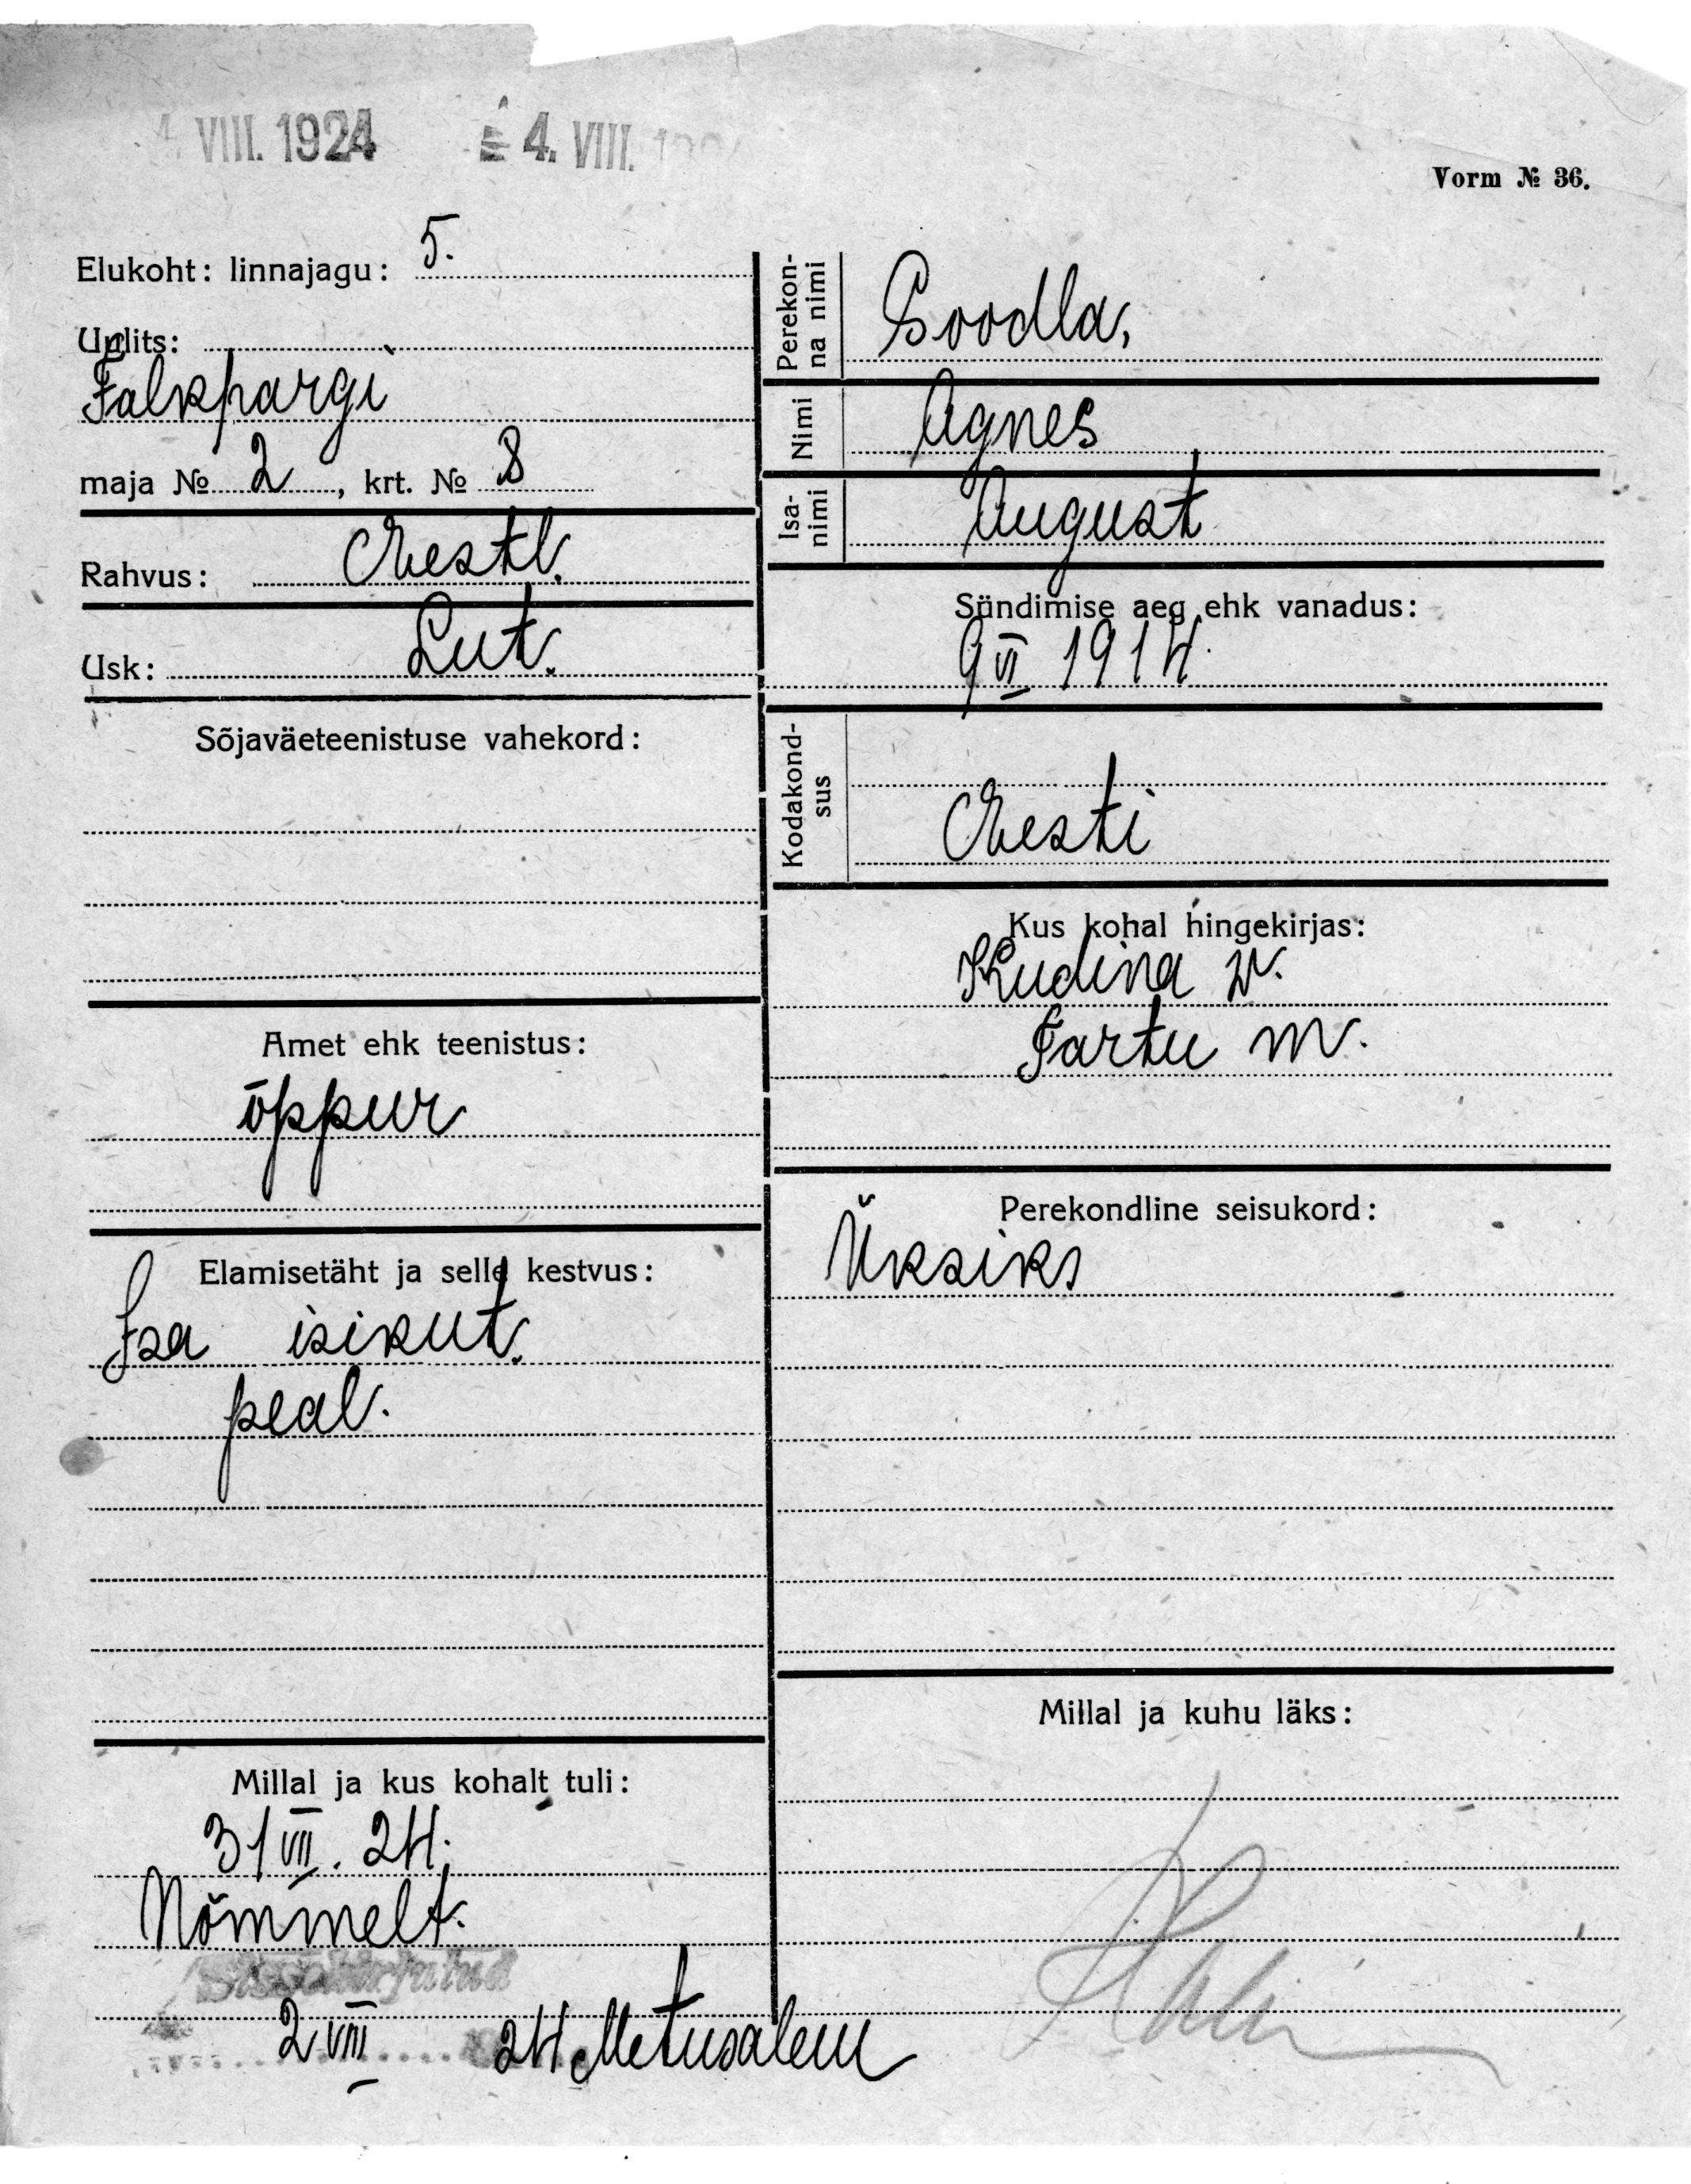 4. VIII. 1924 4. VIII.
Vorm № 36.
Elukoht: linnajagu: 5.
Uulits:
Falkpargi
maja № 2, krt. № 8
Rahvus: Eestl.
Usk: Lut.
Sõjaväeteenistuse vahekord:
Amet ehk teenistus:
õppur
Elamisetäht ja selle kestvus:
Isa isikut.
peal.
Millal ja kus kohalt tuli:
31 VII. 24.
Nõmmelt.
Sissekirjutud
2 VIII 24. Metusalem
Perekon-
na nimi
Soodla,
Nimi Agnes
Isa-
nimi
August
Sündimise aeg ehk vanadus:
9 VI 1914.
Kodakond-
sus
Eesti
Kus kohal hingekirjas:
Kudina v.
Tartu m.
Perekondline seisukord:
Üksiks
Millal ja kuhu läks: